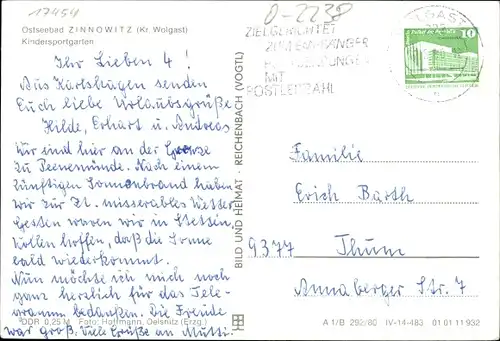 17454
Ostseebad ZINNOWITZ (Kr. Wolgast)
Kindersportgarten
Ihr Lieben 4!
Aus Karlshagen senden
Euch liebe Urlaubsgrüße
Hilde, Erhart u. Andreas
Wir sind hier an der Grenze
zu Peenemünde. Nach einem
zünftigen Sonnenbrand haben
wir zur Zt. miserables Wetter
Gestern waren wir in Stettin,
wollen hoffen, daß die Sonne
bald wiederkommt.
Nun möchte ich mich noch
ganz herzlich für das Tele-
gramm bedanken. Die Freude
war groß. Viele Grüße an Mutti.
DDR 0,25 M Foto: Hoffmann, Oelsnitz (Erzg.)
BILD UND HEIMAT · REICHENBACH (VOGTL)
0-2238
ZIELGERICHTET
ZUM EMPFÄNGER
MIT
POSTLEITZAHL
WOLGAST
10
Familie
Erich Barth
9377 Thum
Annaberger Str. 7
A 1/B 292/80 IV-14-483 01 01 11 932